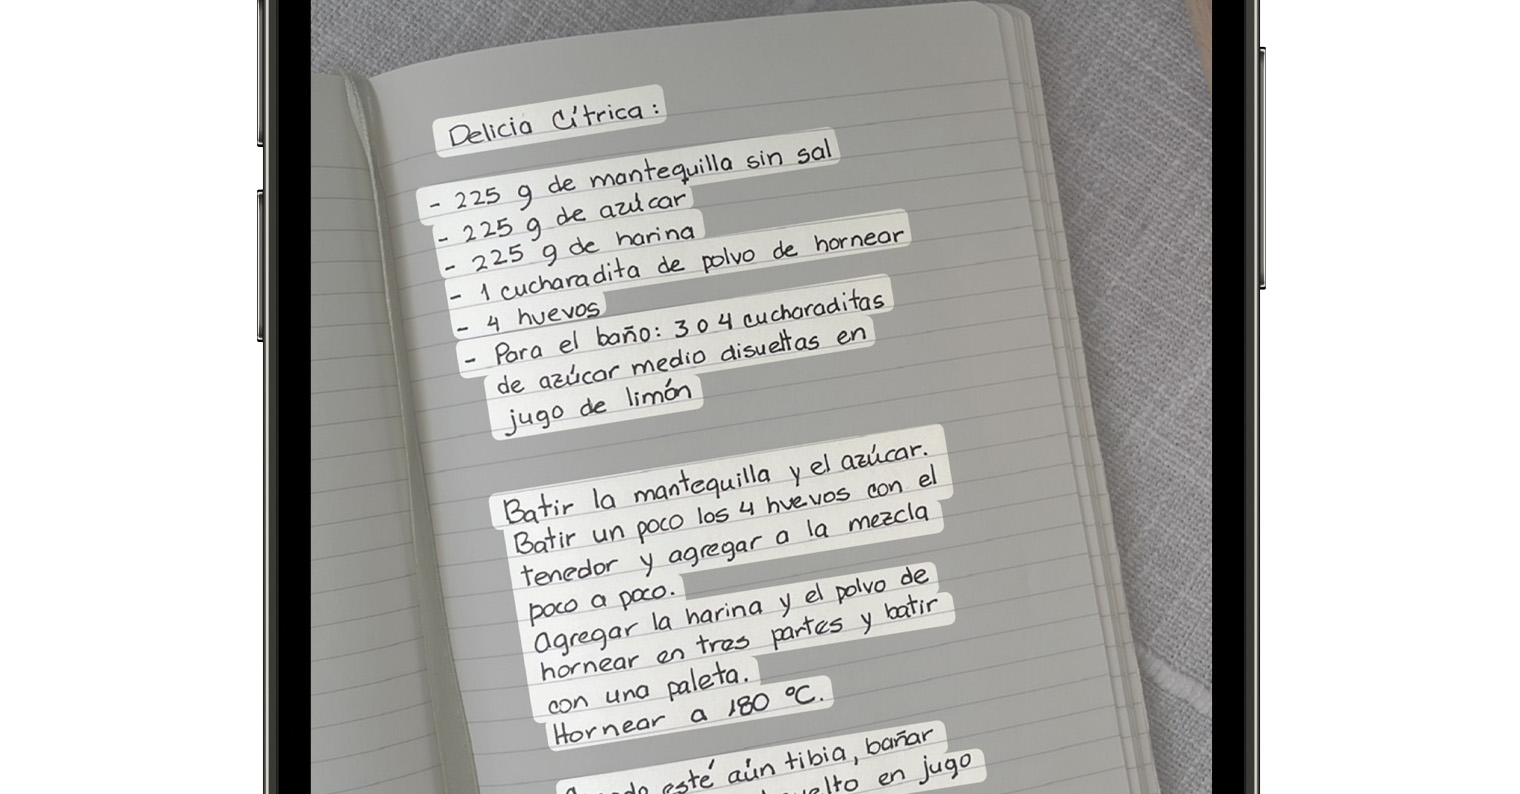 Delicia Cítrica:
- 225 g de mantequilla sin sal
- 225 g de azúcar
- 225 g de harina
- 1 cucharadita de polvo de hornear
- 4 huevos
- Para el baño: 3 o 4 cucharaditas
de azúcar medio disueltas en
jugo de limón
Batir la mantequilla y el azúcar.
Batir un poco los 4 huevos con el
tenedor y agregar a la mezcla
poco a poco.
Agregar la harina y el polvo de
hornear en tres partes y batir
con una paleta.
Hornear a 180 °C.
esté aún tibia, bañar
en jugo